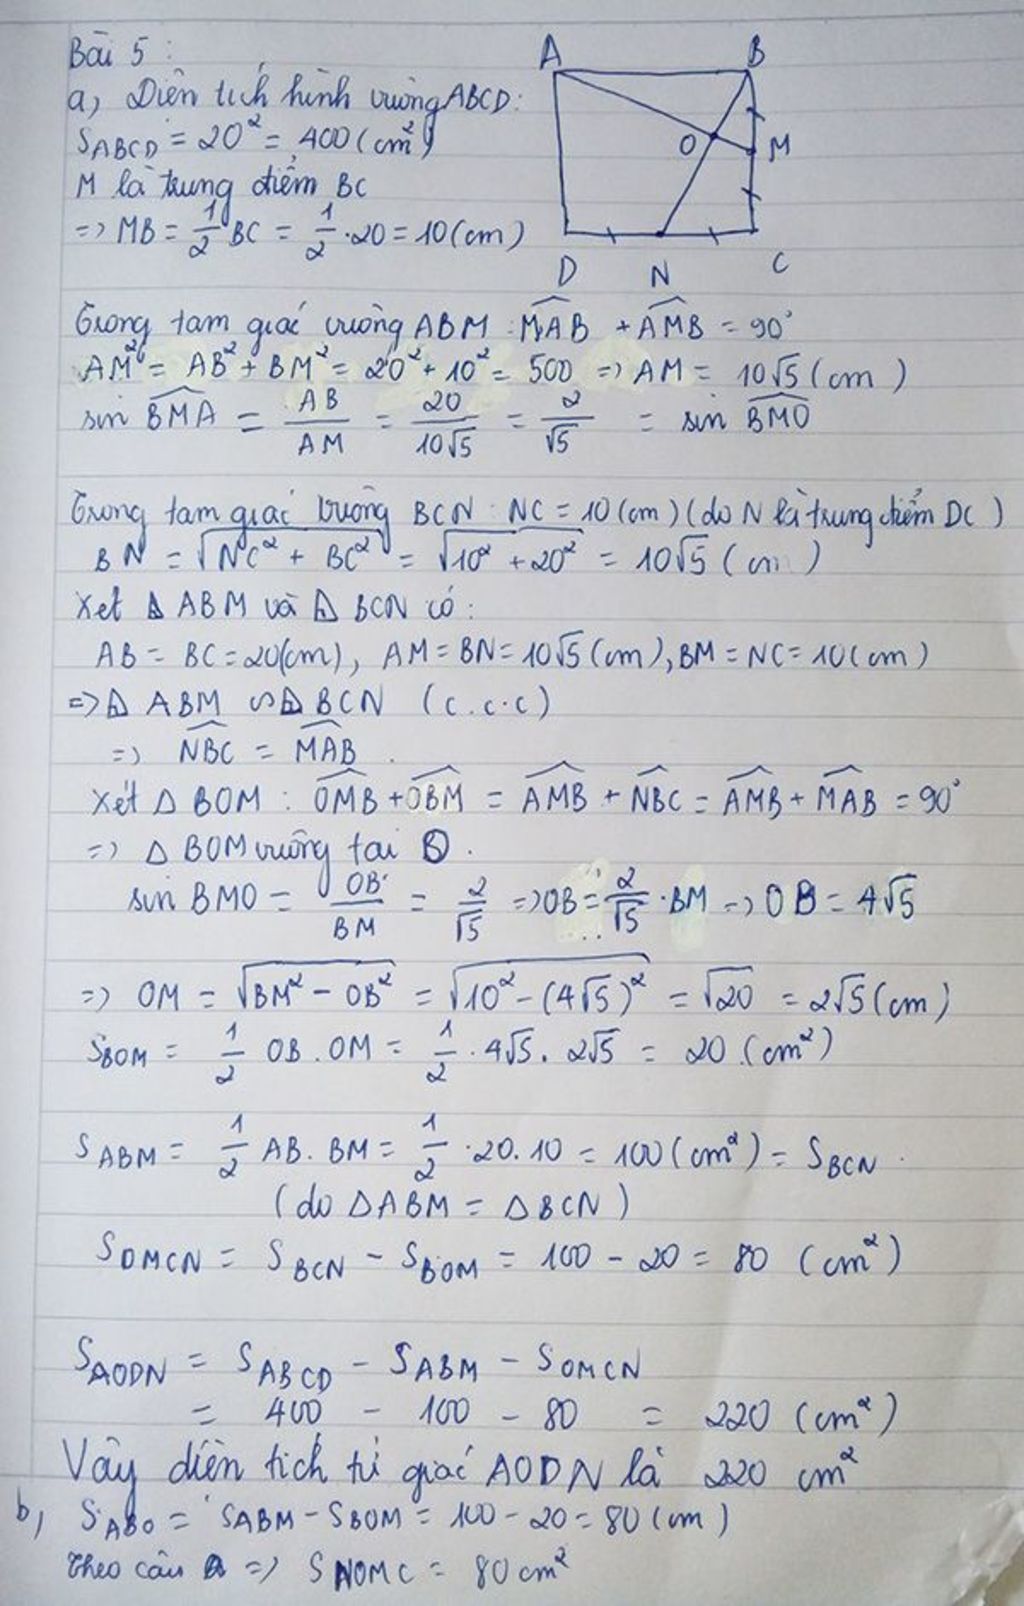 Bài 5 :
a, Diện tích hình vuông ABCD:
S_ABCD = 20² = 400 (cm²)
M là trung điểm BC
=> MB = 1/2 BC = 1/2 · 20 = 10 (cm)
A B
O M
D N C
Trong tam giác vuông ABM : M̂AB + ÂMB = 90°
AM² = AB² + BM² = 20² + 10² = 500 => AM = 10√5 (cm)
sin B̂MA = AB/AM = 20/10√5 = 2/√5 = sin B̂MO
Trong tam giác vuông BCN : NC = 10 (cm) (do N là trung điểm DC)
BN = √(NC² + BC²) = √(10² + 20²) = 10√5 (cm)
Xét Δ ABM và Δ BCN có :
AB = BC = 20(cm), AM = BN = 10√5 (cm), BM = NC = 10 (cm)
=> Δ ABM ∽ Δ BCN (c.c.c)
=> N̂BC = M̂AB .
Xét Δ BOM : ÔMB + ÔBM = ÂMB + N̂BC = ÂMB + M̂AB = 90°
=> Δ BOM vuông tại O .
sin BMO = OB/BM = 2/√5 => OB = 2/√5 · BM => OB = 4√5
=> OM = √(BM² - OB²) = √(10² - (4√5)²) = √20 = 2√5 (cm)
S_BOM = 1/2 OB . OM = 1/2 . 4√5 . 2√5 = 20 (cm²)
S_ABM = 1/2 AB . BM = 1/2 · 20 . 10 = 100 (cm²) = S_BCN .
(do ΔABM = ΔBCN)
S_OMCN = S_BCN - S_BOM = 100 - 20 = 80 (cm²)
S_AODN = S_ABCD - S_ABM - S_OMCN
= 400 - 100 - 80 = 220 (cm²)
Vậy diện tích tứ giác AODN là 220 cm²
b, S_ABO = S_ABM - S_BOM = 100 - 20 = 80 (cm)
Theo câu a => S_NOMC = 80 cm²